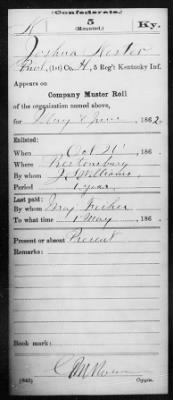 (Confederate.)
K 5 Ky.
(Mounted.)
Joshua Kester
Pvt., (1st) Co. H, 5 Reg't Kentucky Inf.
Appears on
Company Muster Roll
of the organization named above,
for May & June 1862.
Enlisted:
When Oct 21, 186
Where Prestonsburg
By whom J. S. Williams
Period 1 year
Last paid:
By whom Maj
To what time 1 May, 186
Present or absent Present
Remarks:
Book mark:
(642) Copyist.